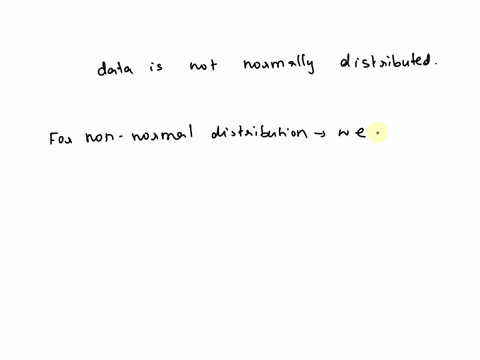 data is not normally distributed.
For non-normal distribution → we